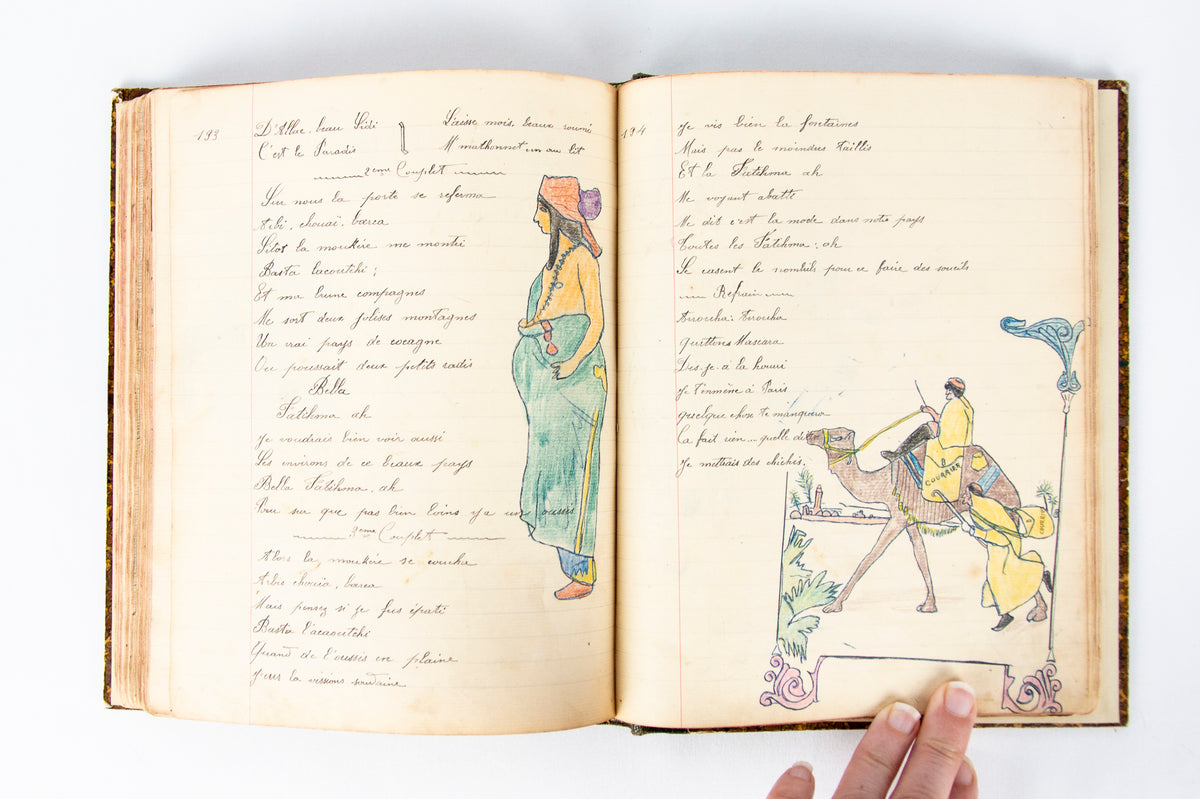 193
D'Allac, beau Sidi
C'est le Paradis
Laisse, mois, beaux roumis
M'mathonnet un au lit
2eme Couplet
Sur nous la porte se referma
Arbi, chouaï, barca
Sitot la moukère me montri
Basta lacoutchi;
Et ma brune compagnes
Me sort deux jolises montagnes
Un vrai pays de cocagne
Ou poussait deux petits radis
Bella
Fatihma ah
Je voudrais bien voir aussi
Les environs de ce beaux pays
Bella Fatihma, ah
Pour sur que pas bien loins y a un oussis
3eme Couplet
Alors la, moukère se coucha
Arbis chouïa, barca
Mais pensez si je fus épati
Basta l'acaoutchi
Quand de l'oussis en plaine
J'eus la vissions soudaine
194
Je vis bien la fontaines
Mais pas le moindres taillis
Et la Fatihma ah
Me voyant abatti
Me dit c'est la mode dans notre pays
Toutes les Fatihma: ah
Se rasent le nombrils pour ce faire des sourcils
Refrain
Aroucha: Aroucha
Quittons Mascara
Dis-je à la houri
Je t'enmène à Paris
Quelque chose te manquera
Ca fait rien... quelle
Je mettrais des chichis.
COURRIER